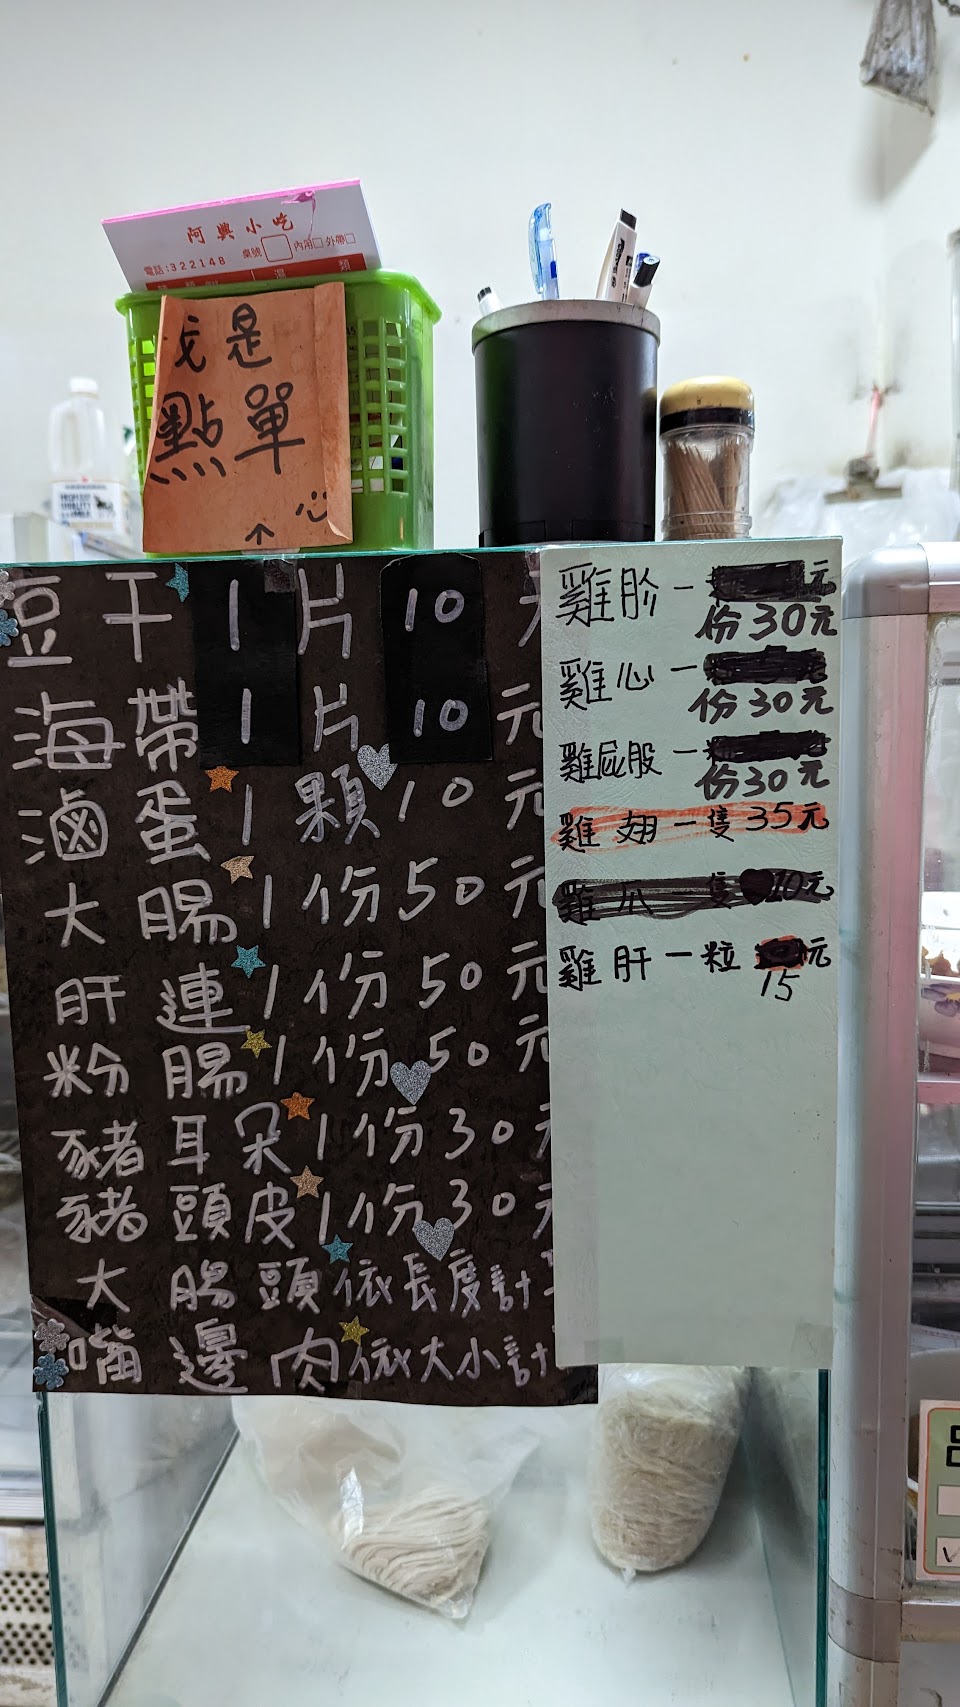 阿興小吃
電話:322148 桌號 內用 外帶
我是
點單
豆干1片10元
海帶1片10元
滷蛋1顆10元
大腸1份50元
肝連1份50元
粉腸1份50元
豬耳朵1份30元
豬頭皮1份30元
大腸頭依長度計
嘴邊肉依大小計
雞胗一元
份30元
雞心一
份30元
雞屁股一元
份30元
雞翅一隻35元
雞爪一隻10元
雞肝一粒元
15